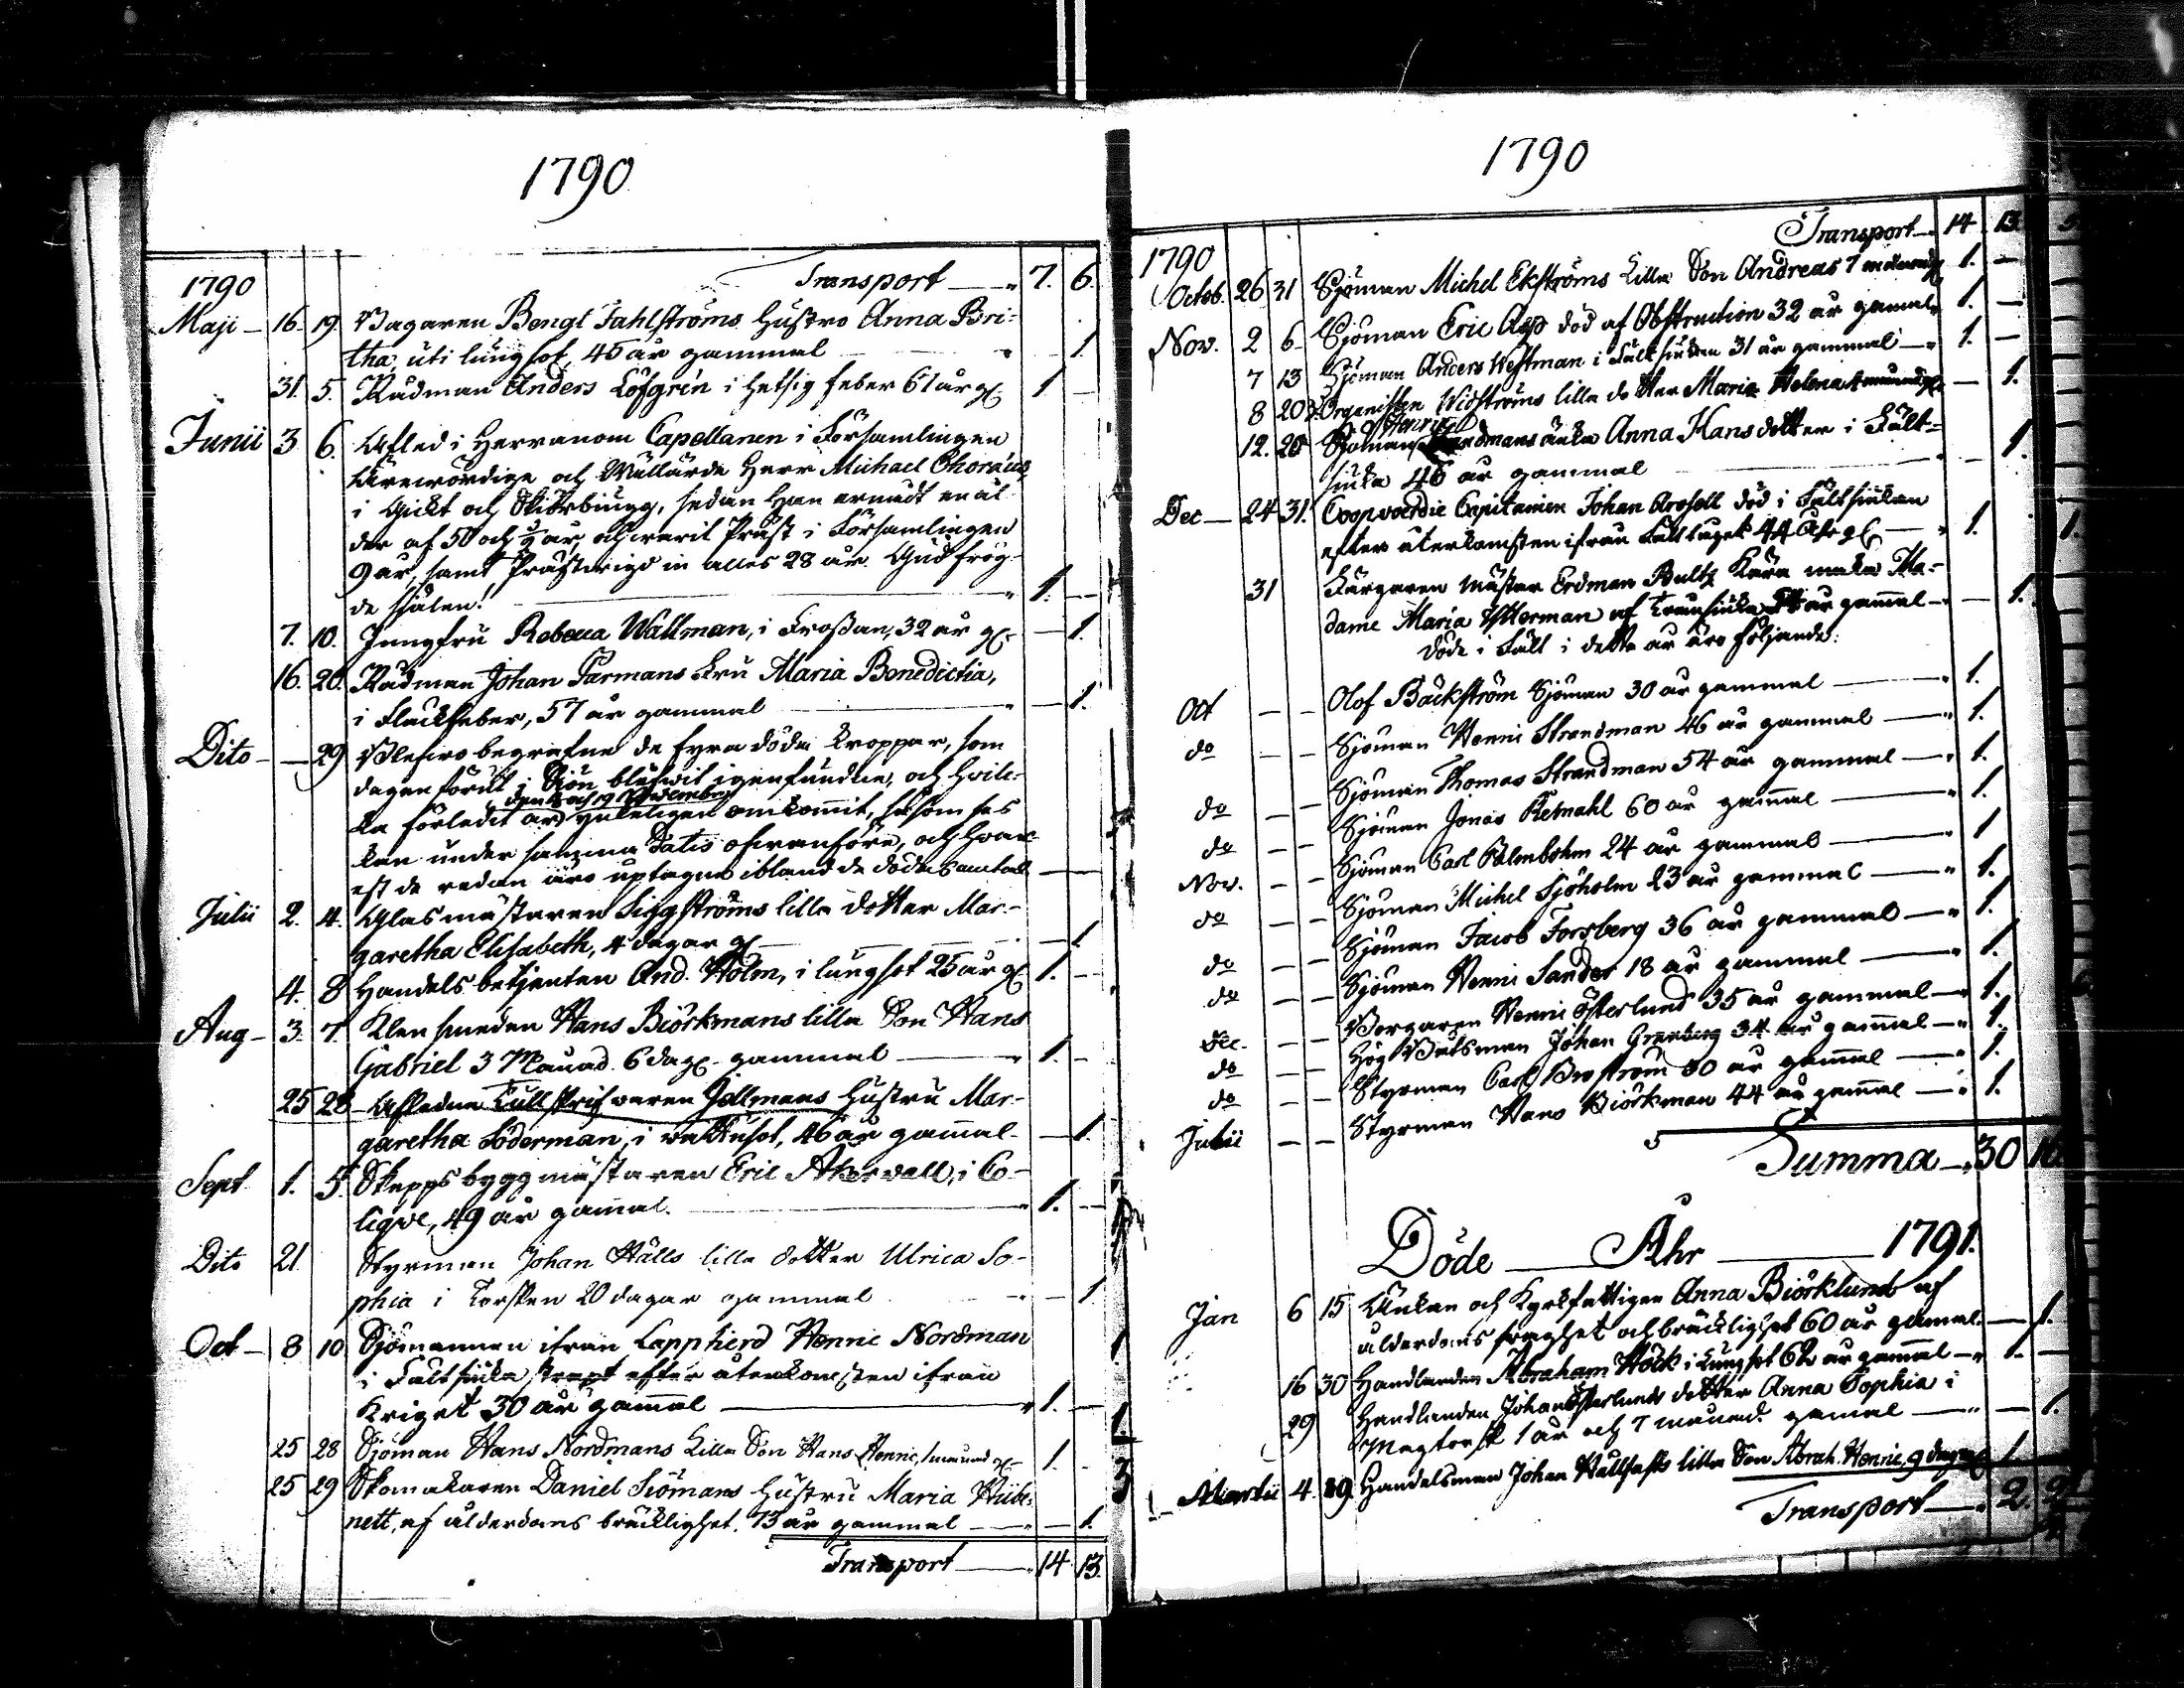 1790
Transport — 7. 6.
1790
Maji — 16. 19. Bagaren Bengt Fahlströms Hustro Anna Bri-
tha, uti lungsot, 45 år gammal — 1.
31. 5. Rådman Anders Löfgrén i hetsig feber 61 år gl. 1. —
Junii 3 6. Afled i Herranom Capellanen i Församlingen
Ärewördige och Wällärde Herr Michael Choræus,
i Gickt och Skiörbiugg, sedan han arnådt en ål-
der af 50 och ½ år, och warit Präst i Församlingen
9 år, samt Prästwigd in alles 28 år. Gud frög-
de själen! — 1. —
7. 10. Jungfru Rebecca Wallman, i Frossan, 32 år gl. — 1.
16. 20. Rådman Johan Parmans Fru Maria Benedictia,
i Fläckfeber, 57 år gammal — 1.
Dito — — 29 Blefwo begrafne de fyra döda kroppar, som
dagen förut i Siön blifwit igenfundne, och hwil-
den och 19 November
ka förledit år ynkeligen omkommit, såsom ses
kan under samma Datis ofwanföre, och hwar-
est de redan äro uptagne ibland de dödas antal —
Julii 2. 4. Glasmästaren Siggströms lilla dotter Mar-
garetha Elisabeth, 4 dagar gl. — 1.
4. 8 Handels betjenten And. Holm, i lungsot 25 år gl. 1. —
Aug — 3. 7. Klensmeden Hans Biörkmans lilla Son Hans
Gabriel 3 Månad. 6 dag. gammal — 1. —
25 28 Afledne Tullskrifwaren Gellmans Hustru Mar-
garetha Söderman, i wattusot, 46 år gammal — 1.
Sept. 1. 5. Skeppsbyggmästaren Eric Åkervall, i Co-
liqve, 49 år gammal. — 1. —
Dito 21 Styrman Johan Hälls lilla dotter Ulrica So-
phia i Torsken 20 dagar gammal — 1
Oct — 8 10 Sjömannen ifrån Lappfierd Henric Nordman
i Fältsiuka strapt efter återkomsten ifrån
Kriget 30 år gammal — 1. —
25 28 Sjöman Hans Nordmans Lilla Son Hans Henric, 1 månad gl. 1. —
25 29 Skomakaren Daniel Siömans Hustru Maria Hübe-
nett, af ålderdoms bräcklighet. 73 år gammal — 1.
Transport — 14 13.
1790
Transport — 14 13.
1790
Octob. 26 31 Sjöman Michel Ekströms Lilla Son Andreas 7 månad gl. 1. —
Nov. 2 6 Sjöman Eric Alsp död af Obstruction 32 år gammal 1. —
7 13 Sjöman Anders Westman i Fältsiukan 31 år gammal — 1. —
8 20 Organisten Widströms lilla dotter Maria Helena 4 månad gl. — 1.
Henric
12. 20 Sjöman Strandmans änka Anna Hansdotter i Fält-
siuka 46 år gammal — 1.
Dec — 24 31. Coopvaerdie Capitainen Johan Arosell död i Fältsiukan
efter återkomsten ifrån Fälttuget 44 Åhr gl. — 1.
31 Färgaren Mäster Erdman Bultz Kära maka Ma-
dame Maria Ytterman af Transiuka år gammal — 1.
Döde i Fält i detta år äro följande:
Oct — — Olof Bäckström Sjöman 30 år gammal — 1.
do — — Sjöman Henric Strandman 46 år gammal — 1.
do — — Sjöman Thomas Strandman 54 år gammal — 1.
do — — Sjöman Jonas Remahl 60 år gammal — 1.
Nov. — — Sjöman Carl Palmbohm 24 år gammal — 1
do — — Sjöman Michel Sjöholm 23 år gammal — 1.
do — — Sjöman Jacob Forsberg 36 år gammal — 1.
do — — Sjöman Henric Sander 18 år gammal — 1.
Dec. — — Borgaren Henric Österlund 35 år gammal — 1.
do — — Hög Båtsman Johan Grenberg 34 år gammal — 1.
do — — Styrman Carl Broström 30 år gammal — 1.
Julii — — Styrman Hans Biörkman 44 år gammal — 1.
Summa — 30 16.
Döde — Åhr — 1791.
Jan 6 15 Enkan och Kyrkfattigen Anna Biörklund af
ålderdoms swaghet och bräcklighet 60 år gammal — 1.
16 30 Handlanden Abraham Höck i Lungsot 62 år gammal — 1. —
29 Handlanden Johan Österlunds dotter Anna Sophia i
Magtorsk 1 år och 7 månad. gammal — 1.
Martii 4. 19. Handelsman Johan Hällfasts lilla Son Abrah. Henric, 9 dag gl. 1. —
Transport — 2. 2.